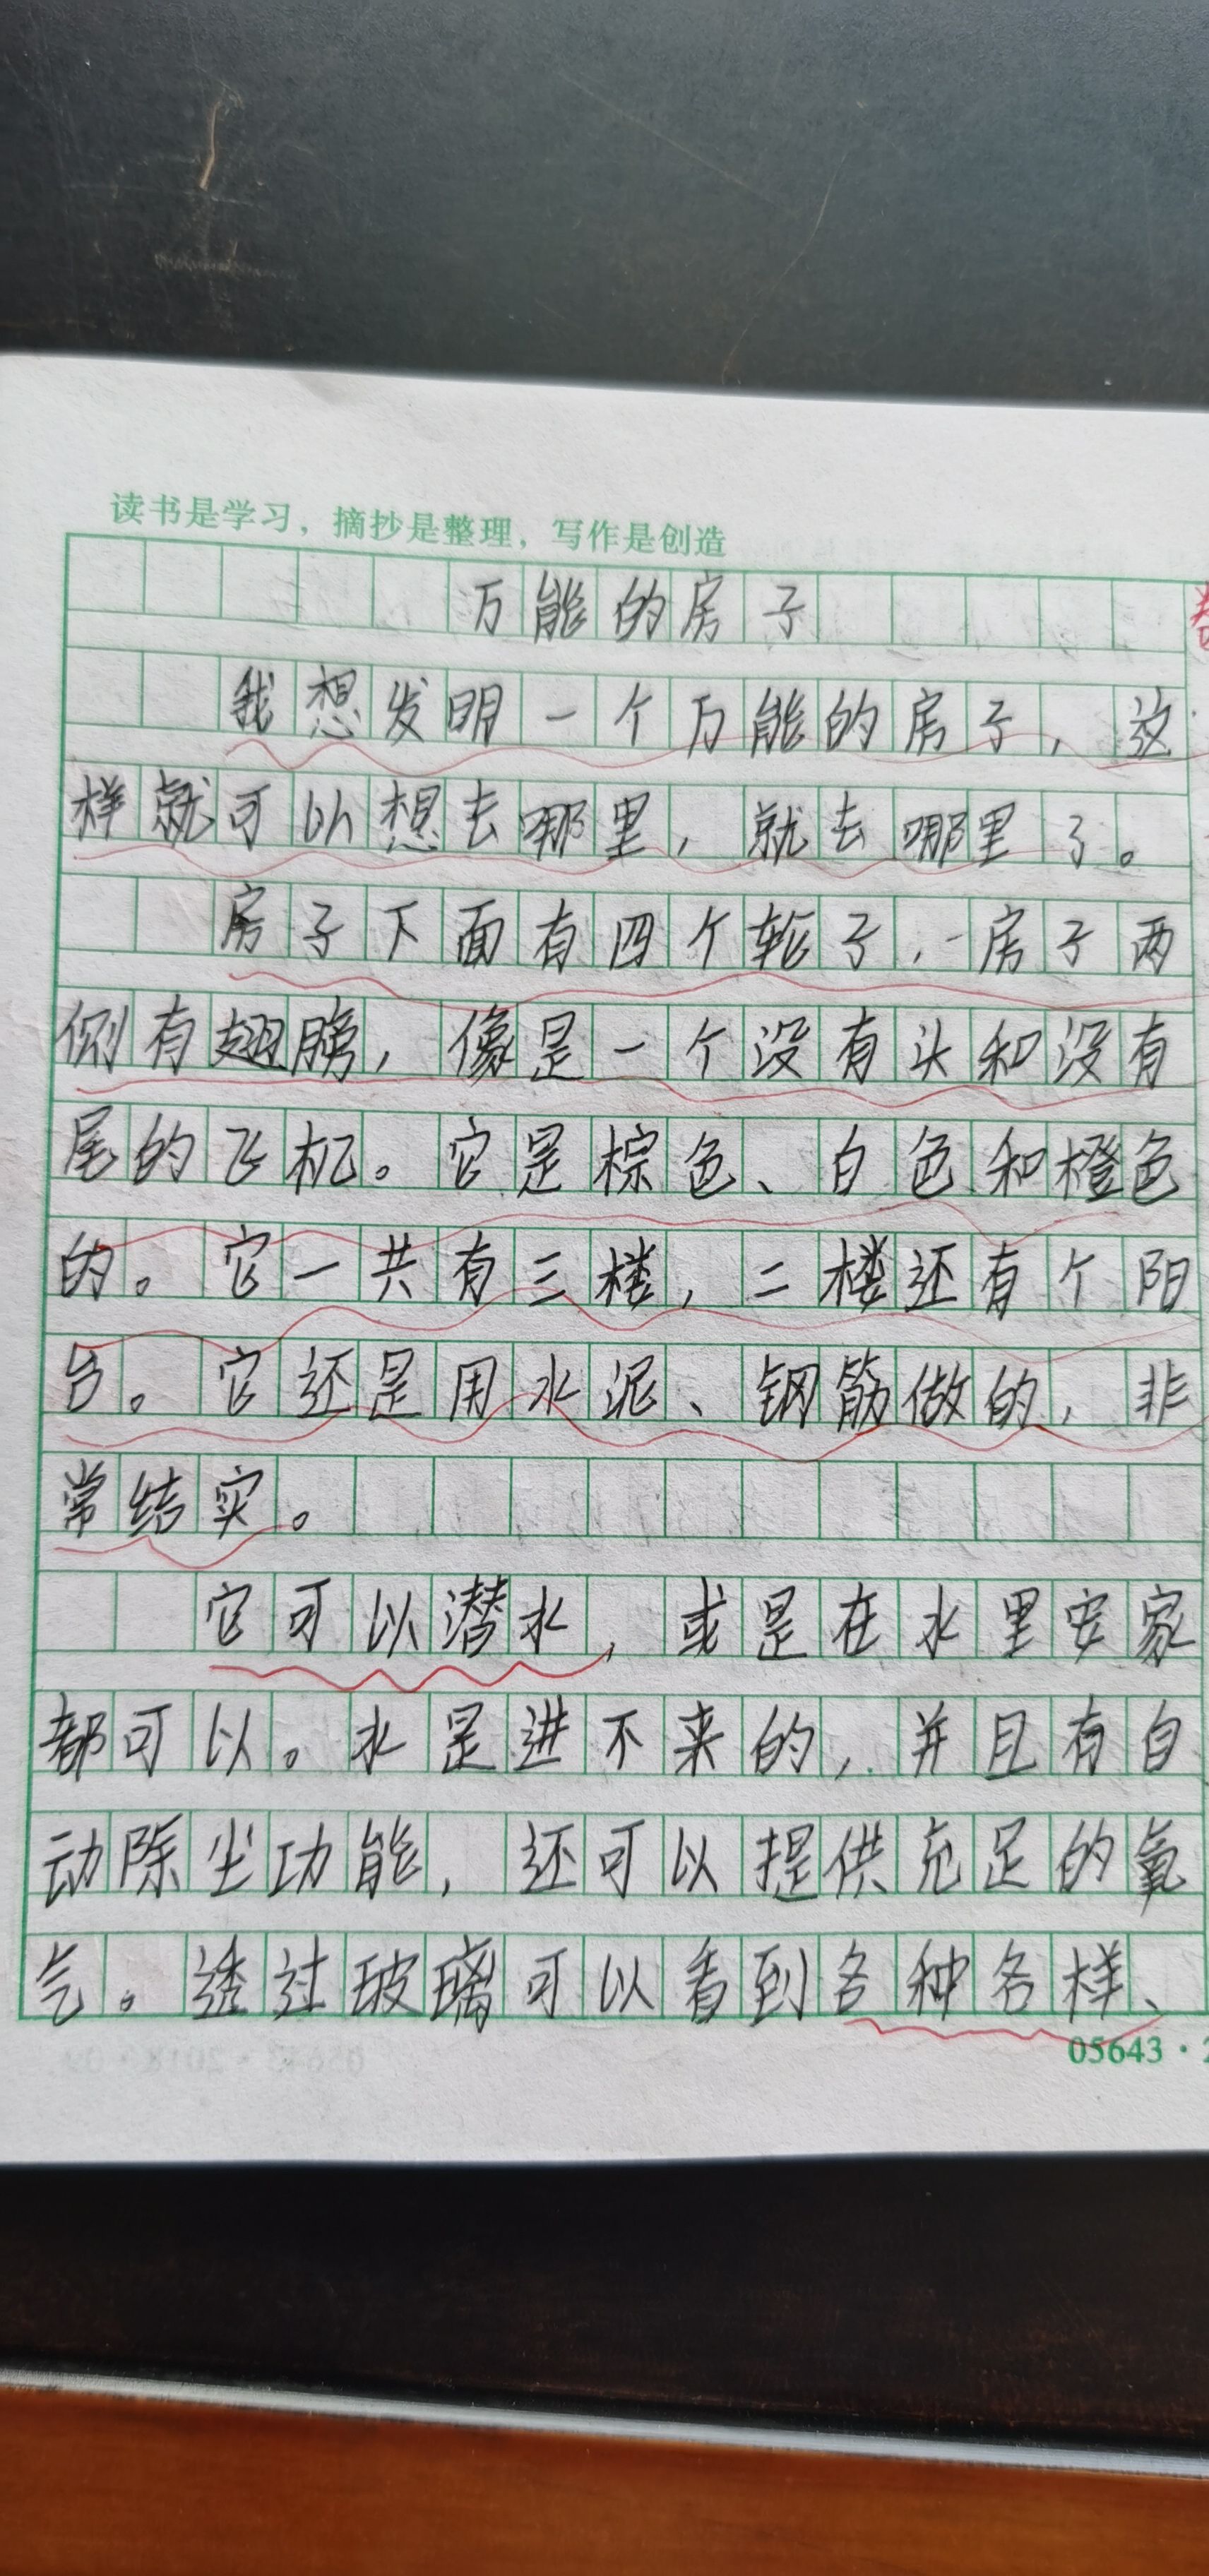 读书是学习，摘抄是整理，写作是创造
万能的房子
我想发明一个万能的房子，这
样就可以想去哪里，就去哪里了。
房子下面有四个轮子，房子两
侧有翅膀，像是一个没有头和没有
尾的飞机。它是棕色、白色和橙色
的。它一共有三楼，二楼还有个阳
台。它还是用水泥、钢筋做的，非
常结实。
它可以潜水，或是在水里安家
都可以。水是进不来的，并且有自
动除尘功能，还可以提供充足的氧
气。透过玻璃可以看到各种各样、
05643·2